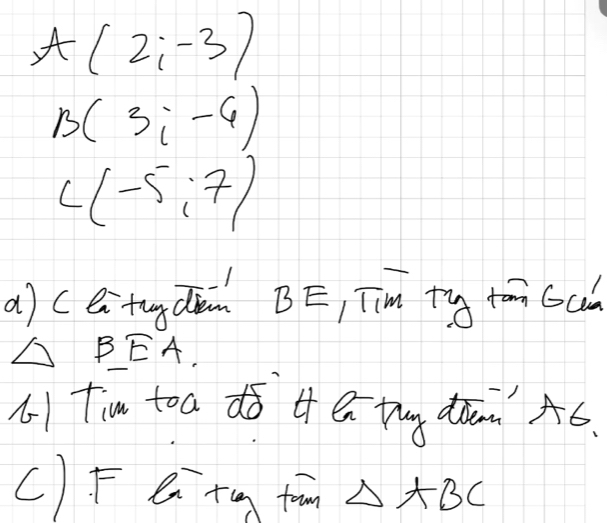 A(2;-3)
B(3;-4)
C(-5;7)
a) C là trung điểm BE, Tìm trg tâm G của
△ BEA.
b) Tìm toạ độ H là trung điểm AG.
C) F là trọng tâm △ ABC